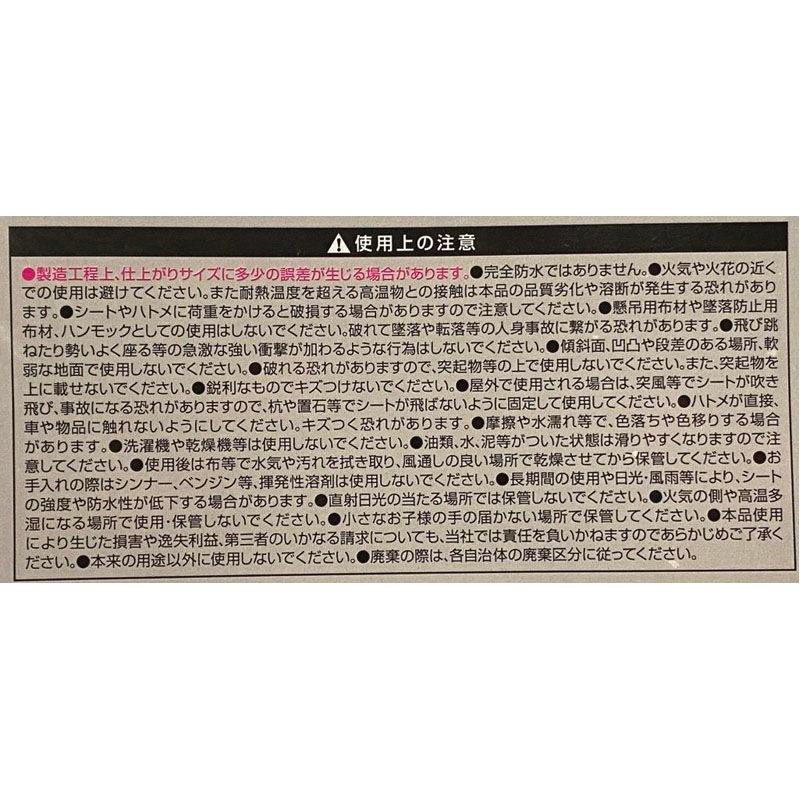 ⚠使用上の注意
●製造工程上、仕上がりサイズに多少の誤差が生じる場合があります。●完全防水ではありません。●火気や火花の近く
での使用は避けてください。また耐熱温度を超える高温物との接触は本品の品質劣化や溶断が発生する恐れがあり
ます。●シートやハトメに荷重をかけると破損する場合がありますので注意してください。●懸吊用布材や墜落防止用
布材、ハンモックとしての使用はしないでください。破れて墜落や転落等の人身事故に繋がる恐れがあります。●飛び跳
ねたり勢いよく座る等の急激な強い衝撃が加わるような行為はしないでください。●傾斜面、凹凸や段差のある場所、軟
弱な地面で使用しないでください。●破れる恐れがありますので、突起物等の上で使用しないでください。また、突起物を
上に載せないでください。●鋭利なものでキズつけないでください。●屋外で使用される場合は、突風等でシートが吹き
飛び、事故になる恐れがありますので、杭や置石等でシートが飛ばないように固定して使用してください。●ハトメが直接、
車や物品に触れないようにしてください。キズつく恐れがあります。●摩擦や水濡れ等で、色落ちや色移りする場合
があります。●洗濯機や乾燥機等は使用しないでください。●油類、水、泥等がついた状態は滑りやすくなりますので注
意してください。●使用後は布等で水気や汚れを拭き取り、風通しの良い場所で乾燥させてから保管してください。●お
手入れの際はシンナー、ベンジン等、揮発性溶剤は使用しないでください。●長期間の使用や日光・風雨等により、シート
の強度や防水性が低下する場合があります。●直射日光の当たる場所では保管しないでください。●火気の側や高温多
湿になる場所で使用・保管しないでください。●小さなお子様の手の届かない場所で保管してください。●本品使用
により生じた損害や逸失利益、第三者のいかなる請求についても、当社では責任を負いかねますのであらかじめご了承く
ださい。●本来の用途以外に使用しないでください。●廃棄の際は、各自治体の廃棄区分に従ってください。